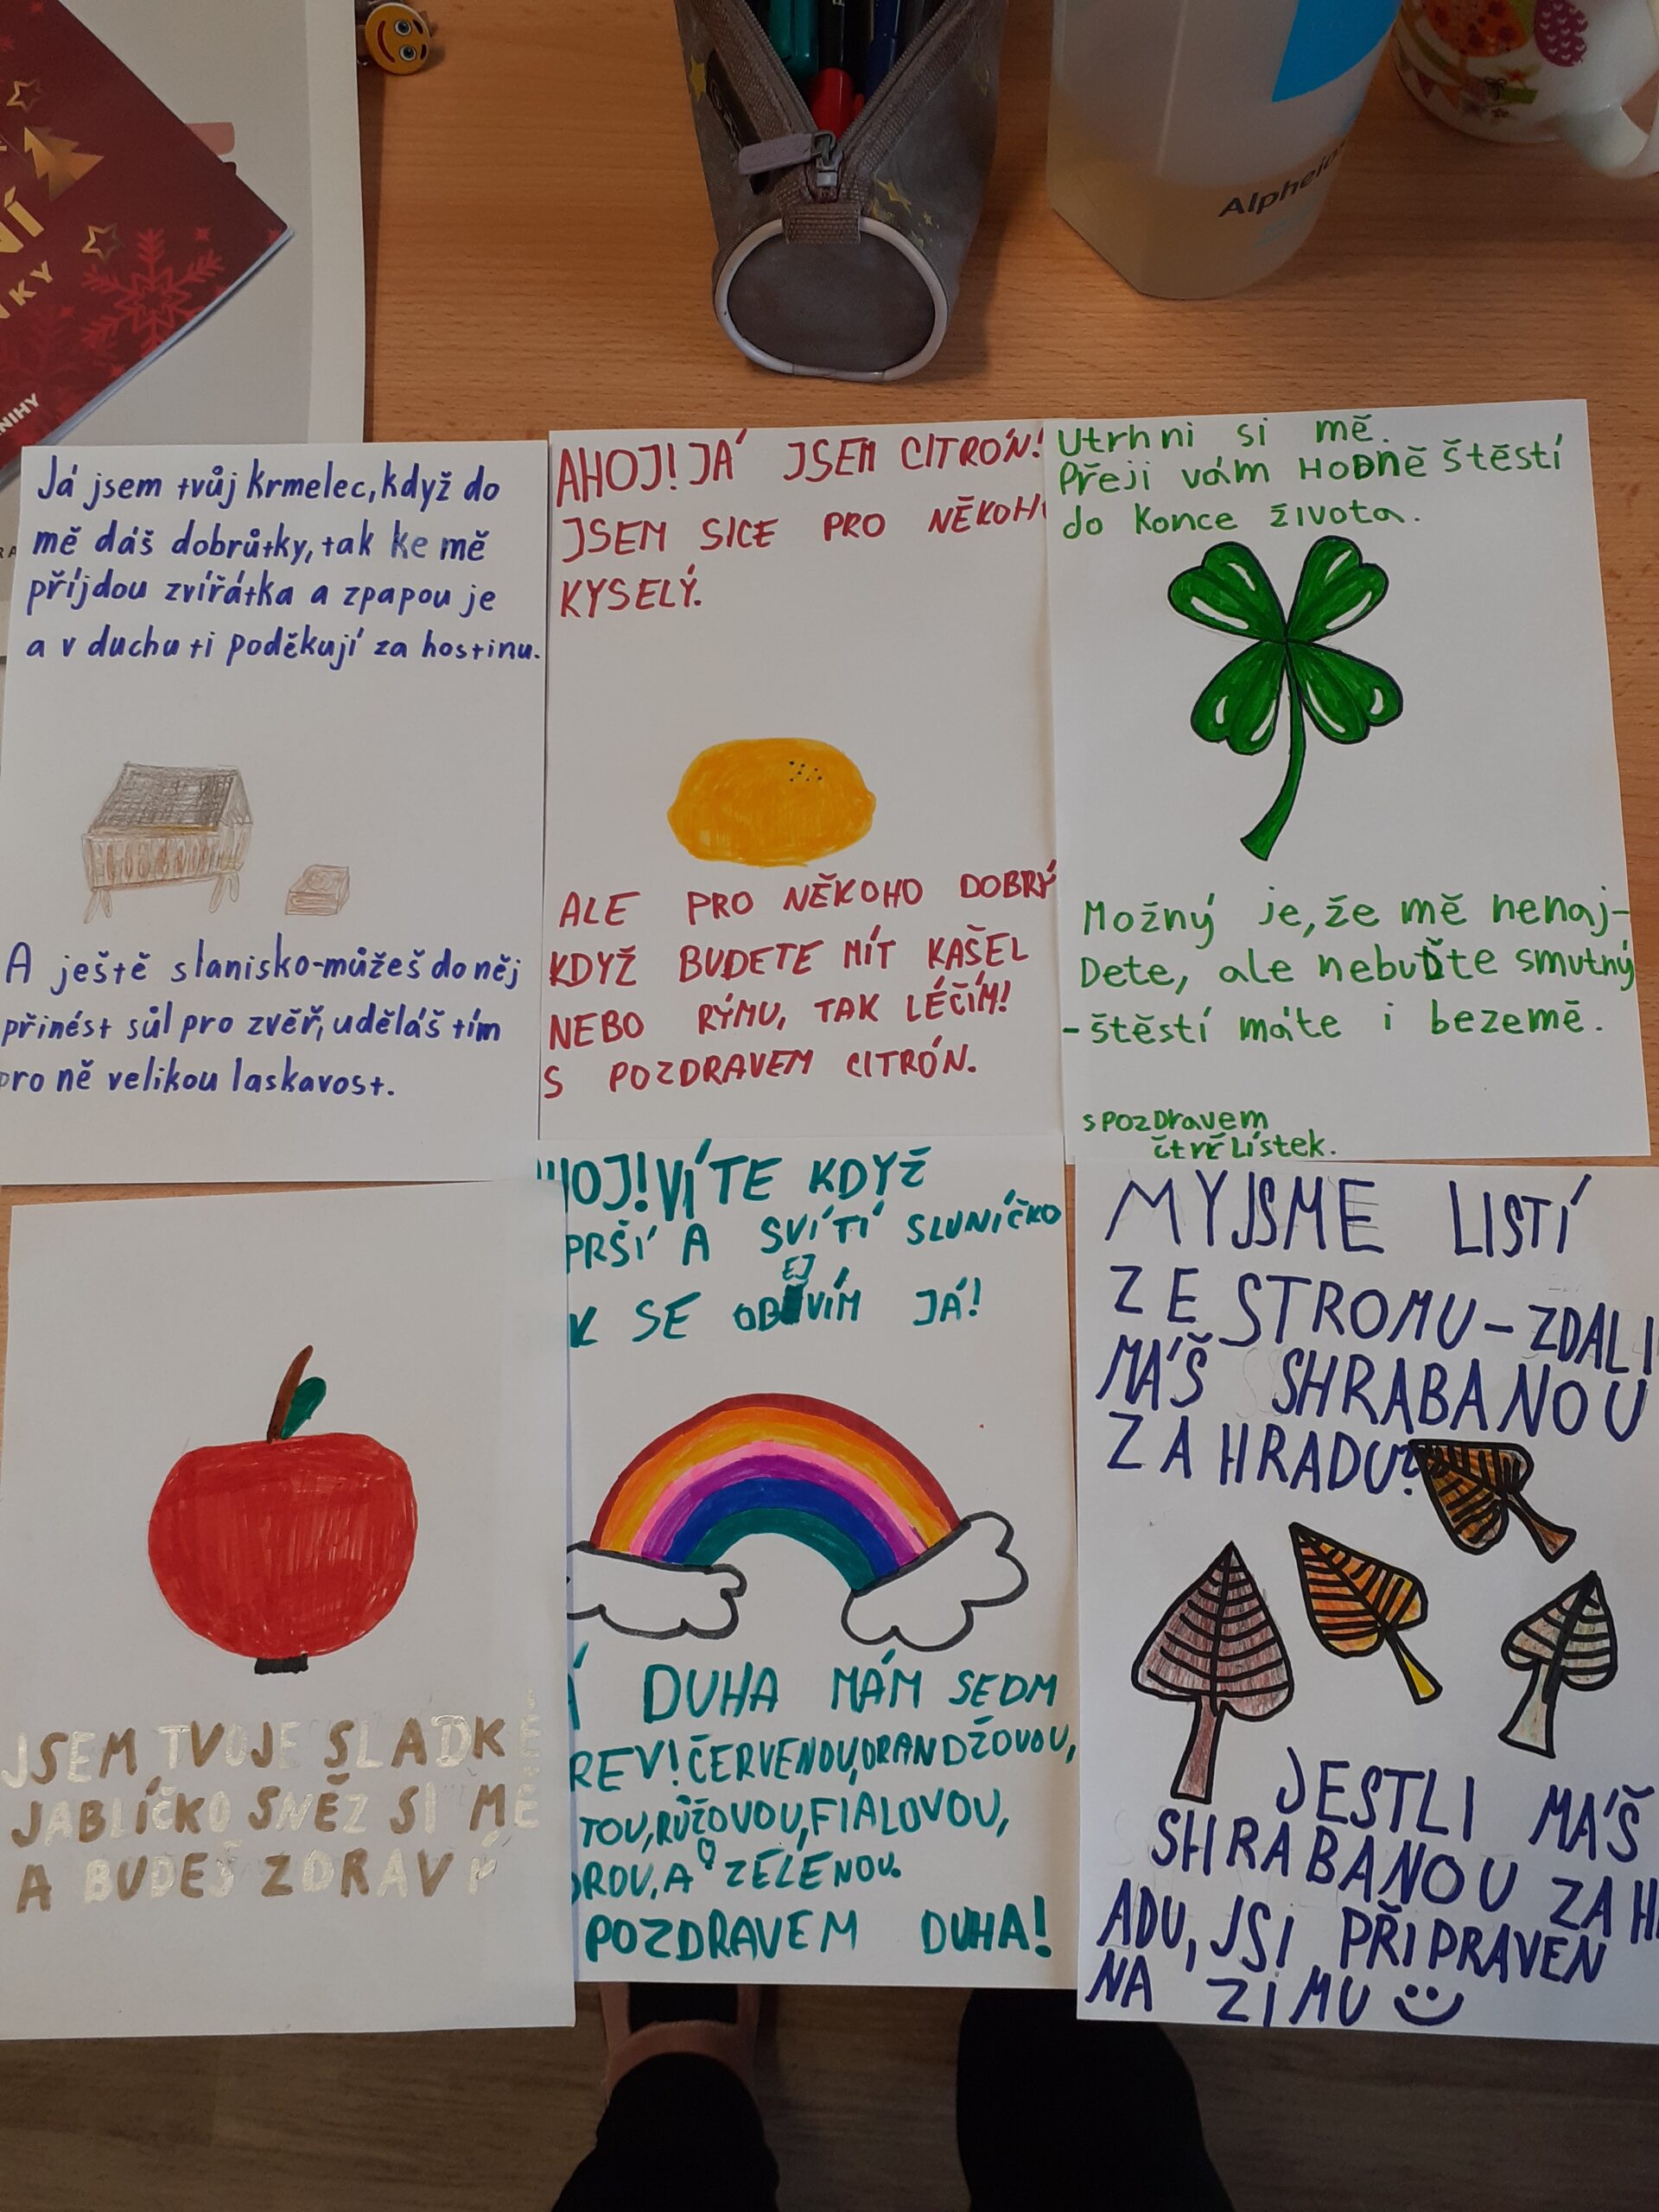 NÍ
NKY
NIHY
Alpheios
Já jsem tvůj krmelec, když do
mě dáš dobrůtky, tak ke mě
příjdou zvířátka a zpapou je
a v duchu ti poděkují za hostinu.
A ještě slanisko-můžeš do něj
přinést sůl pro zvěř, uděláš tím
pro ně velikou laskavost.
AHOJ! JÁ JSEM CITRÓN!
JSEM SICE PRO NĚKOHO
KYSELÝ.
ALE PRO NĚKOHO DOBRÝ
KDYŽ BUDETE MÍT KAŠEL
NEBO RÝMU, TAK LÉČÍM!
S POZDRAVEM CITRÓN.
Utrhni si mě.
Přeji vám HODně štěstí
do konce života.
Možný je, že mě nenaj-
Dete, ale nebuďte smutný
-štěstí máte i bezemě.
s pozDravem
čtvrLístek.
JSEM TVOJE SLADKÉ
JABLÍČKO SNĚZ SI MĚ
A BUDEŠ ZDRAVÝ
HOJ! VÍTE KDYŽ
PRŠÍ A SVÍTÍ SLUNÍČKO
K SE OBEJVÍM JÁ!
Á DUHA MÁM SEDM
REV! ČERVENOU, ORANDŽOVOU,
TOU, RŮŽOVOU, FIALOVOU,
DROU, A ZELENOU.
POZDRAVEM DUHA!
MY JSME LISTÍ
ZE STROMU-ZDALI
MÁŠ SHRABANOU
ZAHRADU?
JESTLI MÁŠ
SHRABANOU ZAHR
ADU, JSI PŘIPRAVEN
NA ZIMU